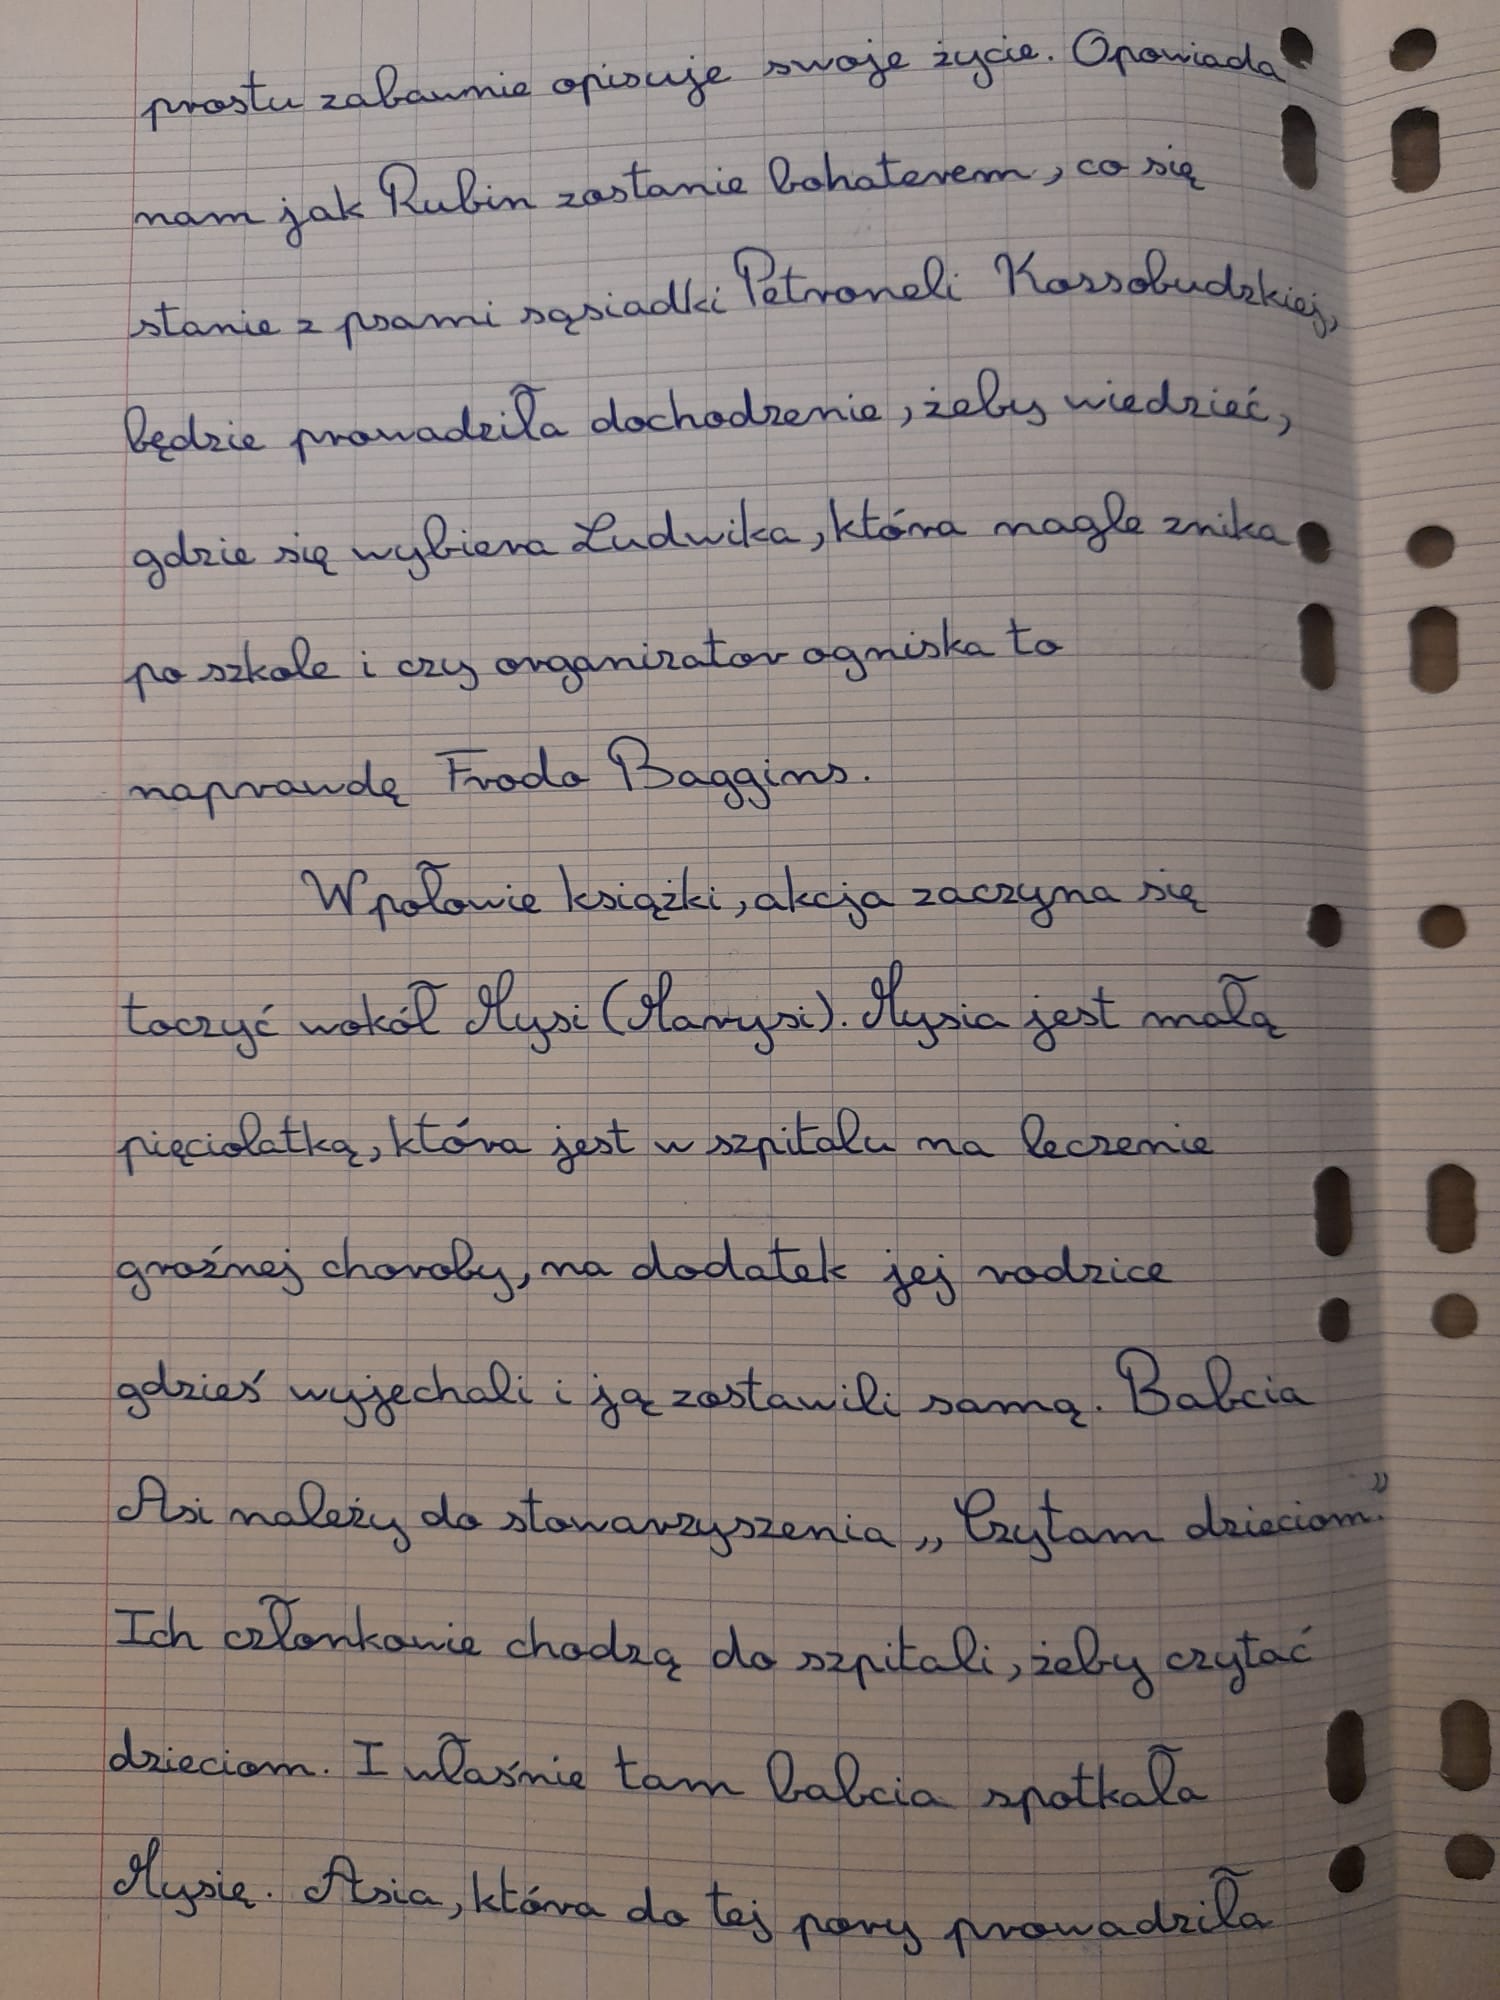 prostu zabawnie opisuje swoje życie. Opowiada
nam jak Rubin zostanie bohaterem, co się
stanie z psami sąsiadki Petroneli Kossobudzkiej,
będzie prowadziła dochodzenie, żeby wiedzieć,
gdzie się wybiera Ludwika, która nagle znika
po szkole i czy organizator ogniska to
naprawdę Frodo Baggins.
W połowie książki, akcja zaczyna się
toczyć wokół Mysi (Marysi). Mysia jest małą
pięciolatką, która jest w szpitalu na leczenie
groźnej choroby, na dodatek jej rodzice
gdzieś wyjechali i ją zostawili samą. Babcia
Asi należy do stowarzyszenia „Czytam dzieciom”.
Ich członkowie chodzą do szpitali, żeby czytać
dzieciom. I właśnie tam babcia spotkała
Mysię. Asia, która do tej pory prowadziła